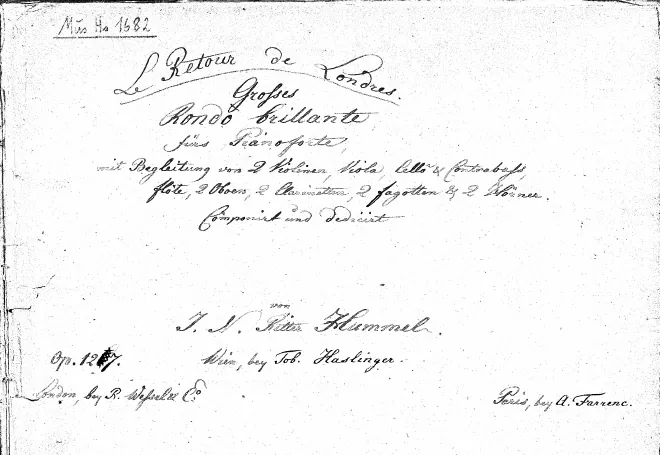 Mus Hs 1682
Le Retour de Londres.
Grosses
Rondo brillante
fürs Pianoforte,
mit Begleitung von 2 Violinen, Viola, Cello & Contrabass,
flöte, 2 Oboen, 2 Clarinetten, 2 fagotten & 2 Hörner.
Componirt und dedicirt
von
J. N. Ritter Hummel.
Op. 127.
Wien, bey Tob. Haslinger.
London, bey R. Wessel & Co
Paris, bey A. Farrenc.